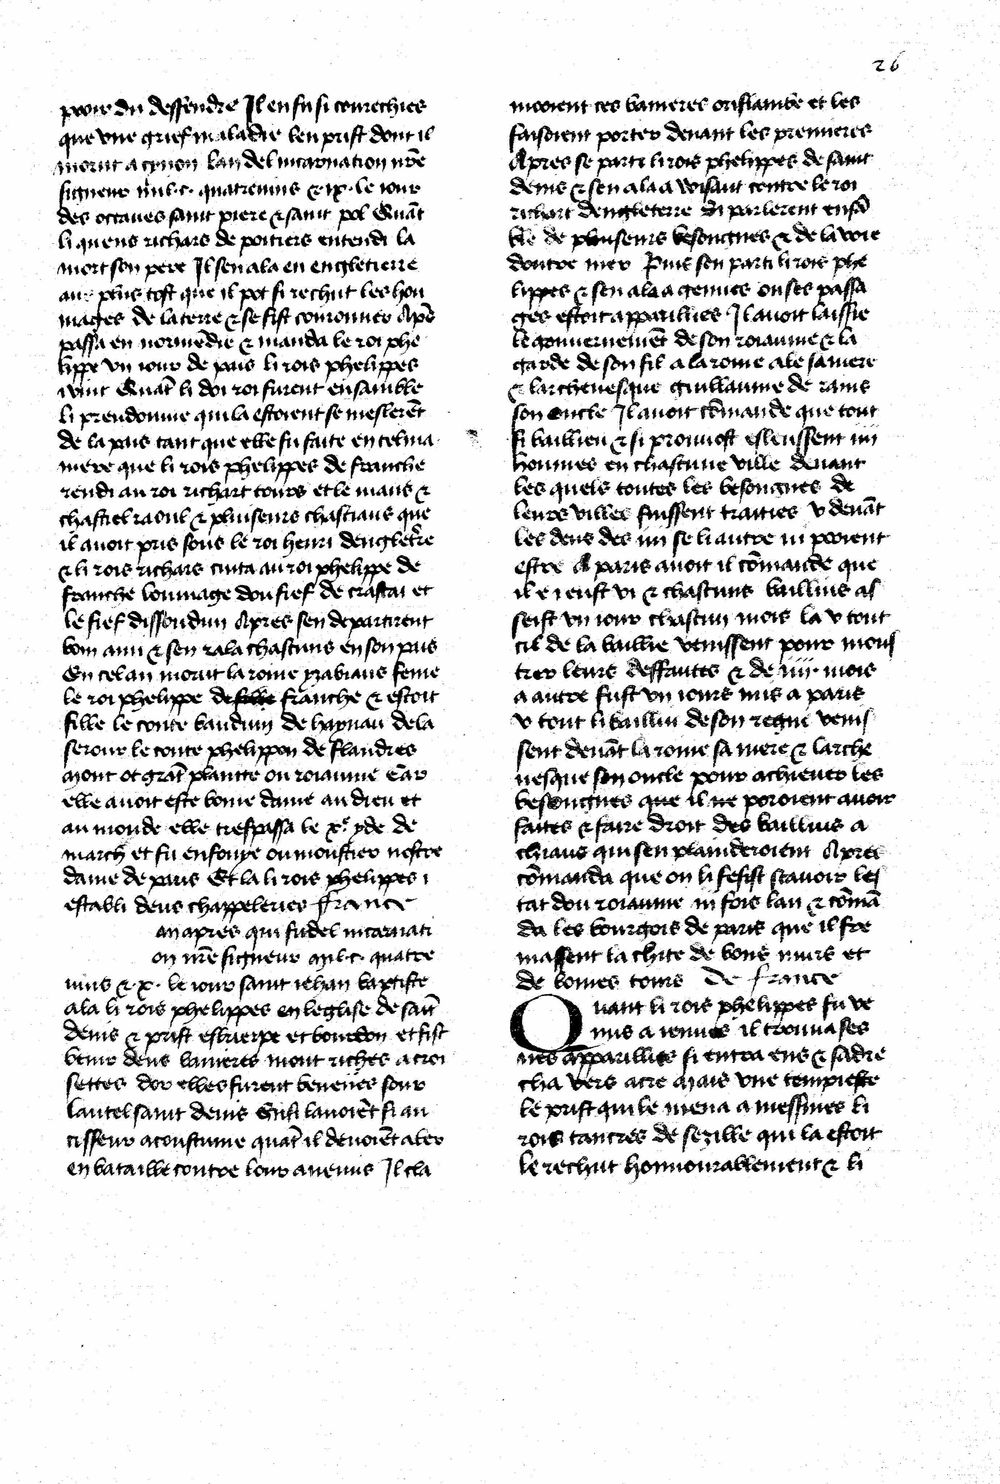 26
pooir du deffendre Il en fu si courechies
que vne grief maladie len prist dont il
morut a cynon lan del incarnation nr̄e
signeur mil·c· quatreuins & ix· le iour
des octaues saint piere & saint pol Quāt
li quens richars de poitiers entendi la
mort son pere Il sen ala en engletierre
au plus tost que il pot si rechut les hou
mages de la terre & se fist couronner Apꝰ
passa en normēdie & manda le roi phe
lippe vn iour de pais li rois phelippes
i vint Quāt li doi roi furent ensamble
li preudoume qui la estoient se meslerēt
de la pais tant que elle fu faite en tel ma
niere que li rois phelippes de franche
rendi au roi richart tours et le mans &
chastiel raoul & pluiseurs chastiaus que
il auoit pris sous le roi henri dengletr̄e
& li rois richars quita au roi phelippe de
franche loumage dou fief de crastai et
le fief dissoudun Apres sen departirent
bon ami & sen rala chascuns en son pais
En cel an morut la roine yzabiaus feme
le roi phelippe de franche & estoit
fille le conte bauduin de haynau de la
serour le conte phelippon de flandres
Mont ot grāt plainte ou roiaume Car
elle auoit este boine dame au dieu et
au monde elle trespassa le xᵉ yde de
march et fu enfouye ou moustier nostre
dame de paris Et la li rois phelippes i
establi deus chappeleries france
an apres qui fu del incarnati
on nr̄e signeur mil·c· quatre
uins & ·x· le iour saint iehan baptiste
ala li rois phelippes en leglise de saīt
denis & prist eskierpe et bourdon et fist
benir deus banieres mout riches a croi
settes dor elles furent beneies sour
lautel saint denis Ensi lauoiēt si an
cisseur acoustume quāt il deuoiēt aler
en bataille contre lour anemis Il cla
moient ces banieres oriflambe et les
faisoient porter deuant les premieres
Apres se parti li rois phelippes de saint
denis & sen ala a wisant contre le roi
richart dengleterre Si parlerent ensā
ble de pluiseurs besongnes & de la voie
doutre mer Puis sen parti li rois phe
lippes & sen ala a gennes ou ses passa
ges estoit apparillies Il auoit laissie
le gouuernemēt de son roiaume & la
garde de son fil a la roine ale sa mere
& larcheuesque guillaume de rains
son oncle Il auoit cōmande que tout
si baillieu & si prouuost esleussent iiij
hommes en chascune ville deuant
les quels toutes les besongnes de
leurs villes fuissent traities v deuāt
les deus des iiij se li autre ni pooient
estre A paris auoit il cōmande que
il e i eust vi & chascuns baillius as
seist vn iour chascun mois la v tout
cil de la baillie venissent pour mous
trer leurs deffautes & de iiij· mois
a autre fust vn iours mis a paris
v tout li bailliu de son regne venis
sent deuāt la roine sa mere & larche
uesque son oncle pour achieuer les
besongnes que il ne poroient auoir
faites & faire droit des baillius a
chiaus qui sen plainderoient Apres
cōmanda que on li fesist sauoir les
tat dou roiaume iij fois lan & cōmā
da les bourgois de paris que il fre
massent la chite de bons murs et
de boines tours De france
Quant li rois phelippes fu ve
nus a iennes il trouua ses
nes apparillies si entra ens & sadre
cha vers acre Mais vne tempieste
le prist qui le mena a messines li
rois tancres de sezille qui la estoit
le rechut honnourablement & li